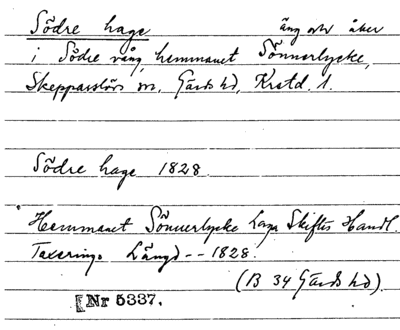 Södre hage äng och åker
i Södre vång, hemmanet Sönnerlycke,
Skepparslövs sn, Gärds hd, Krstd. l.
Södre hage 1828
Hemmanet Sönnerlycke Laga Skiftes Handl.
Taxerings Längd -- 1828.
(B 34 Gärds hd)
Nr 5337.